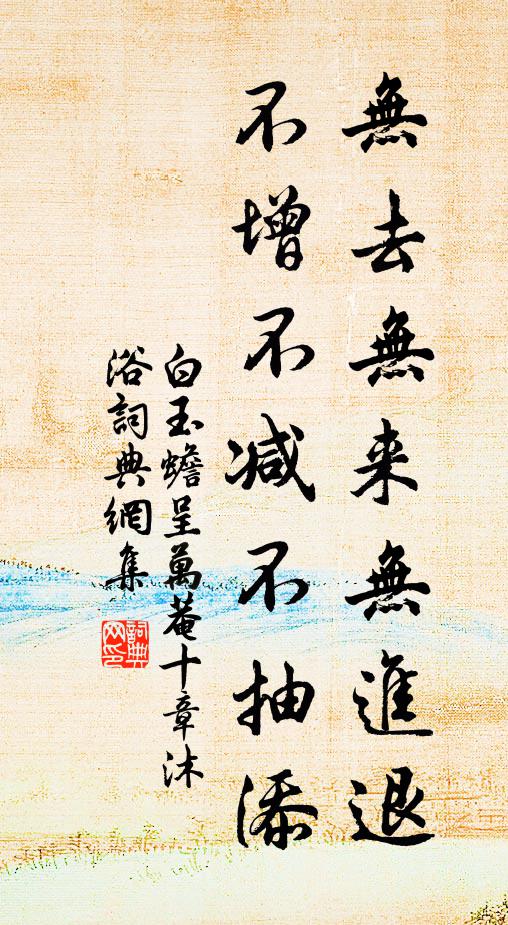 無去無来無進退
不增不減不抽添
白玉蟾呈萬菴十章沐
浴詞典網集
詞典網印